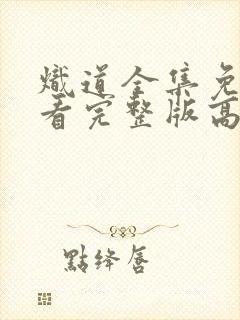 熾道全集免
看完整版高
點绛唇